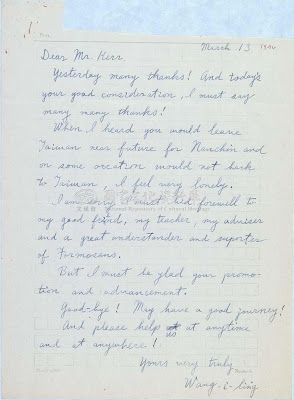 March 13 1946
Dear Mr. Kerr
Yesterday many thanks! And today's
your good consideration, I must say
many many thanks!
When I heard you would leave
Taiwan near future for Nanchin and
on some occation would not back
to Taiwan, I feel very lonely.
I am sorry I must bid forewell to
my good friend, my teacher, my adviser
and a great understander and suporter
of Formosans.
But I must be glad your promo-
tion and advancement.
Good-bye! May have a good journey!
And please help us at anytime
and at anywhere!
Yours very truly
Wang-i-ling